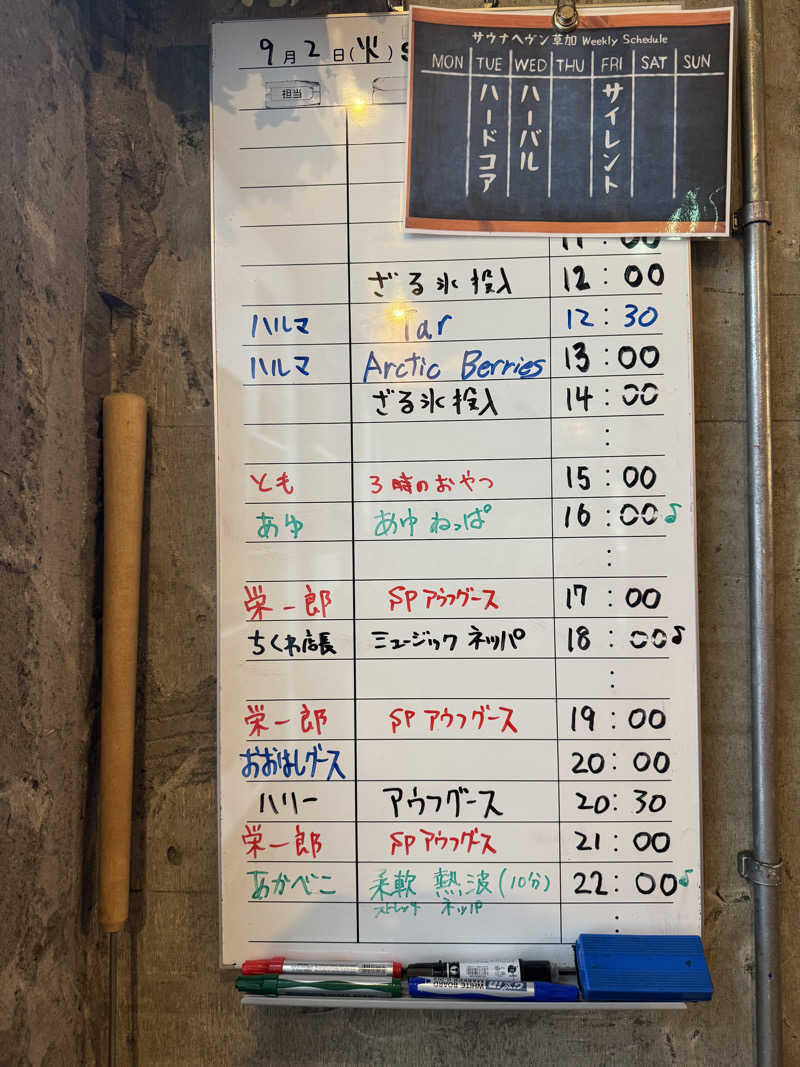 9月2日(火) S
担当
サウナヘヴン草加 Weekly Schedule
MON TUE WED THU FRI SAT SUN
ハードコア
ハーバル
サイレント
11:00
ざる氷投入 12:00
ハルマ Tar 12:30
ハルマ Arctic Berries 13:00
ざる氷投入 14:00
:
とも 3時のおやつ 15:00
あゆ あゆねっぱ 16:00♪
:
栄一郎 SPアウフグース 17:00
ちくわ店長 ミュージック ネッパ 18:00♪
:
栄一郎 SPアウフグース 19:00
おおはしグース 20:00
ハリー アウフグース 20:30
栄一郎 SPアウフグース 21:00
あかべこ 柔軟 熱波(10分) 22:00♪
ストレッチ ネッパ
:
WHITE BOARD